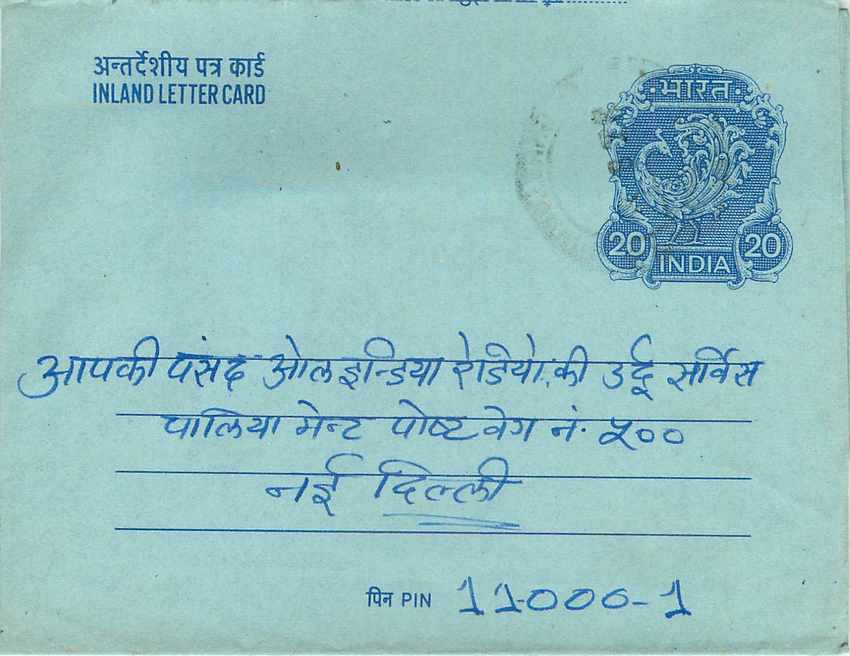 अन्तर्देशीय पत्र कार्ड
INLAND LETTER CARD
भारत
20 20
INDIA
आपकी पंसद ओल इन्डिया रेडियो, की उर्दू सर्विस
पालिया मेन्ट पोष्ट वेग नं. ५००
नई दिल्ली
पिन PIN 11-000-1